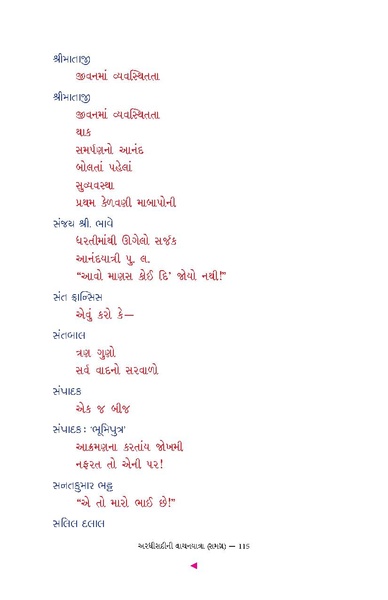 શ્રીમાતાજી
જીવનમાં વ્યવસ્થિતતા
શ્રીમાતાજી
જીવનમાં વ્યવસ્થિતતા
થાક
સમર્પણનો આનંદ
બોલતાં પહેલાં
સુવ્યવસ્થા
પ્રથમ કેળવણી માબાપોની
સંજય શ્રી. ભાવે
ધરતીમાંથી ઊગેલો સર્જક
આનંદયાત્રી પુ. લ.
“આવો માણસ કોઈ દિ’ જોયો નથી!”
સંત ફ્રાન્સિસ
એવું કરો કે—
સંતબાલ
ત્રણ ગુણો
સર્વ વાદનો સરવાળો
સંપાદક
એક જ બીજ
સંપાદક : ‘ભૂમિપુત્ર’
આક્રમણના કરતાંય જોખમી
નફરત તો એની પર!
સનતકુમાર ભટ્ટ
“એ તો મારો ભાઈ છે!”
સલિલ દલાલ
અરધીસદીની વાચનયાત્રા (સમગ્ર) — 115